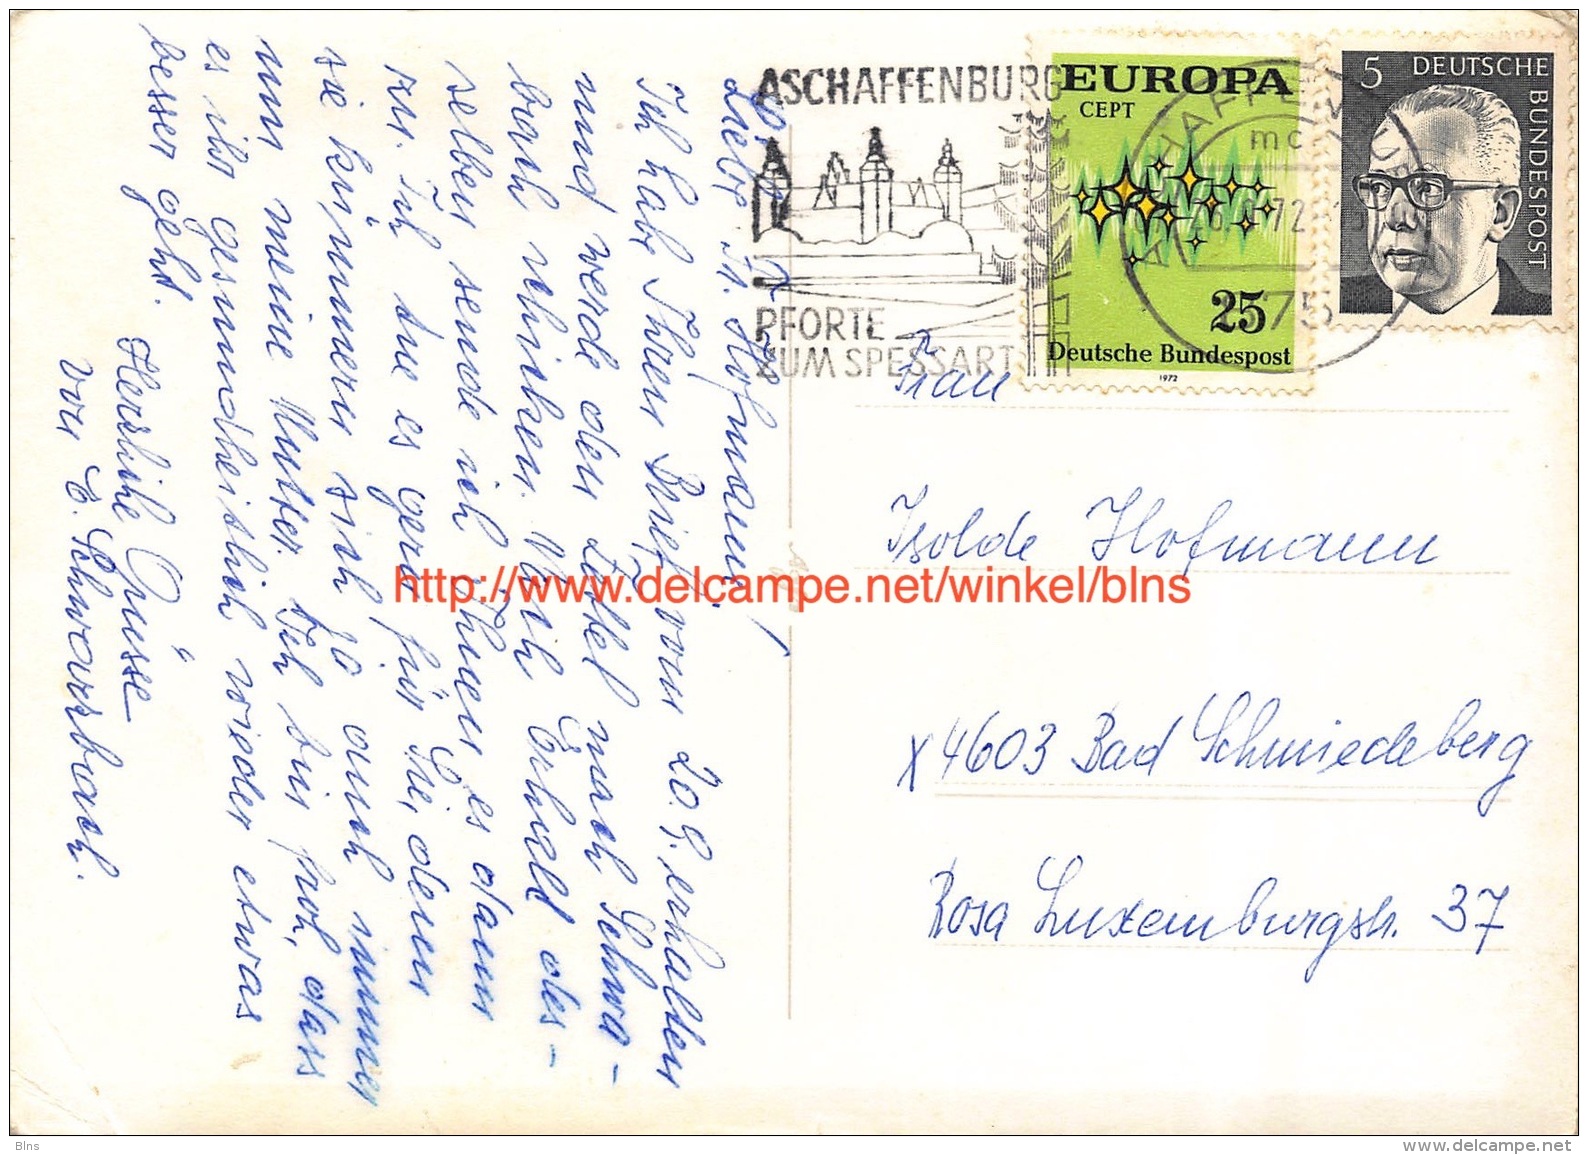 ASCHAFFENBURG
PFORTE
ZUM SPESSART
EUROPA
CEPT
25
Deutsche Bundespost
1972
5 DEUTSCHE
BUNDESPOST
Liebe Fr. Hofmann!
Ich habe Ihren Brief vom 20.9. erhalten
und werde den Zettel nach Schwa-
bach schicken. Nach Erhalt des-
selben sende ich Ihnen es dann
zu. Ich tue es gern für Sie, denn
sie kümmern sich ja auch immer
um meine Mutter. Ich bin froh, dass
es ihr gesundheitlich wieder etwas
besser geht.
Herzliche Grüsse
von E. Schwarzbach.
Frau
Isolde Hofmann
X 4603 Bad Schmiedeberg
Rosa Luxemburgstr. 37
http://www.delcampe.net/winkel/blns
Blns
www.delcampe.net